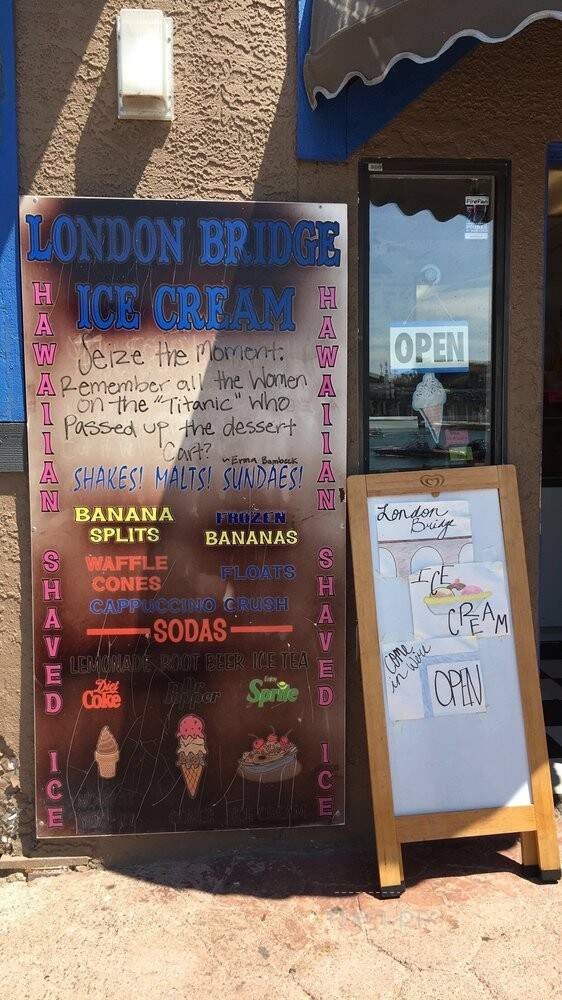 LONDON BRIDGE
ICE CREAM
HAWAIIAN SHAVED ICE
HAWAIIAN SHAVED ICE
Seize the Moment:
Remember all the Women
on the "Titanic" who
Passed up the dessert
Cart?
~Erma Bombeck
SHAKES! MALTS! SUNDAES!
BANANA SPLITS
FROZEN BANANAS
WAFFLE CONES
FLOATS
CAPPUCCINO CRUSH
SODAS
LEMONADE ROOT BEER ICE TEA
Diet Coke
Dr Pepper
Sprite
OPEN
London
Bridge
ICE
CREAM
Come
in We're
OPEN